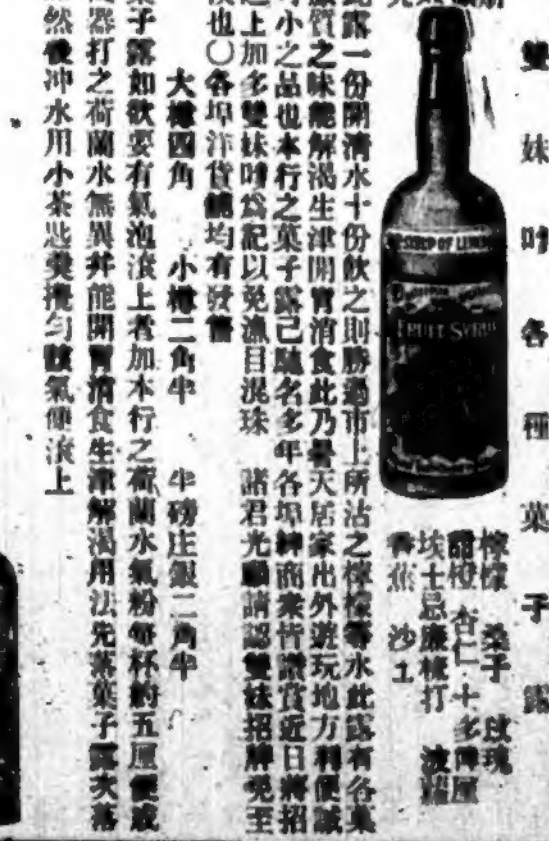 雙妹嘜各種菓子露
檸檬 桑子 玫瑰
甜橙 杏仁 士多啤厘
埃士忌廉梳打 波蘿
香蕉 沙士
FRUIT SYRUP
此露一份開清水十份飲之則勝過市上所沽之檸檬等水此露有各菓
之味能解渴生津開胃消食此乃暑天居家出外遊玩地方利便誠
小之品也本行之菓子露已馳名多年各埠紳商衆皆讚賞近日將招
上加多雙妹嘜爲記以免漁目混珠 諸君光顧請認雙妹招牌
也〇各埠洋貨舖均有發售
大樽四角 小樽二角半 半磅庄銀二角半
子露如欲要有氣泡滾上者加本行之荷蘭水氣粉每杯約五厘
器打之荷蘭水無異并能開胃消食生津解渴用法先落菓子露次落
然後冲水用小茶匙羹攪勻氣便滾上